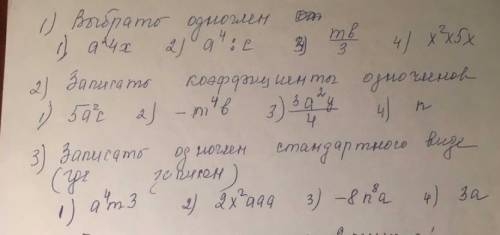 1) Выбрать одночлен
1) a²4x 2) a⁴:c 3) mb/3 4) x²x5x
2) Записать коэффициенты одночленов
1) 5a²c 2) -m⁴b 3) 3a²y/4 4) n
3) Записать одночлен стандартного виде
(где записан)
1) a⁴m3 2) 2x²aaa 3) -8n⁸a 4) 3a